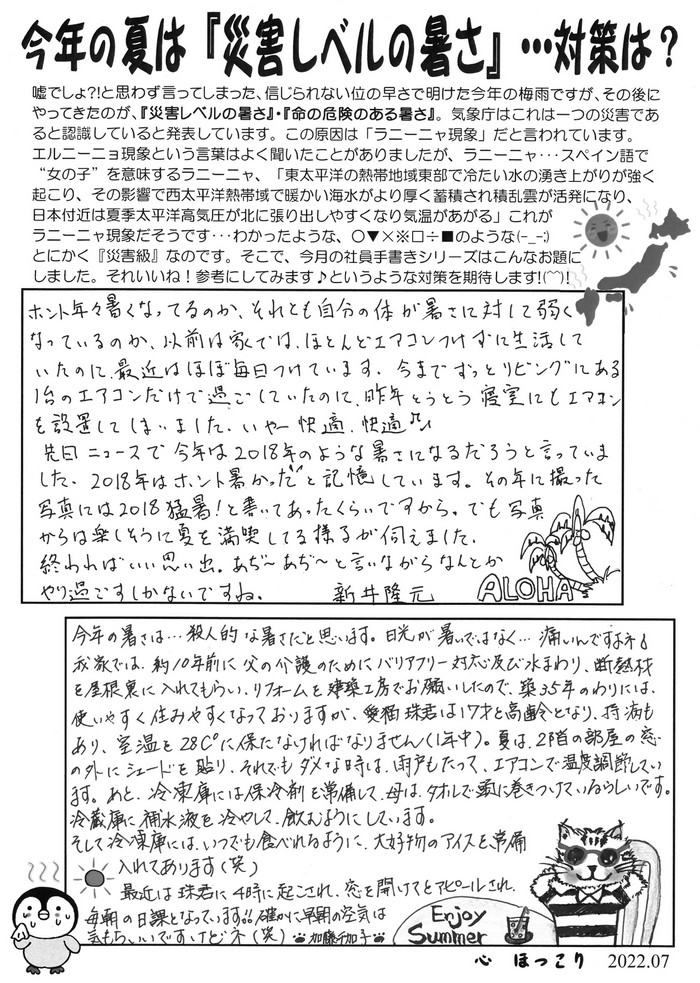 今年の夏は『災害レベルの暑さ』…対策は？
嘘でしょ?!と思わず言ってしまった、信じられない位の早さで明けた今年の梅雨ですが、その後に
やってきたのが、『災害レベルの暑さ』・『命の危険のある暑さ』。気象庁はこれは一つの災害であ
ると認識していると発表しています。この原因は「ラニーニャ現象」だと言われています。
エルニーニョ現象という言葉はよく聞いたことがありましたが、ラニーニャ･･･スペイン語で
“女の子”を意味するラニーニャ、「東太平洋の熱帯地域東部で冷たい水の湧き上がりが強く
起こり、その影響で西太平洋熱帯域で暖かい海水がより厚く蓄積され積乱雲が活発になり、
日本付近は夏季太平洋高気圧が北に張り出しやすくなり気温があがる」これが
ラニーニャ現象だそうです･･･わかったような、〇▼×※□÷■のような(-_-;)
とにかく『災害級』なのです。そこで、今月の社員手書きシリーズはこんなお題に
しました。それいいね！参考にしてみます♪というような対策を期待します!(^^)!
ホント年々暑くなってるのか、それとも自分の体が暑さに対して弱く
なっているのか、以前は家では、ほとんどエアコンつけずに生活して
いたのに、最近はほぼ毎日つけています。今までずっとリビングにある
1台のエアコンだけで過ごしていたのに、昨年とうとう寝室にもエアコン
を設置してしまいました。いやー快適、快適♪
先日ニュースで今年は2018年のような暑さになるだろうと言っていま
した。2018年はホント暑かった〜と記憶しています。その年に撮った
写真には2018猛暑！と書いてあったくらいですから。でも写真
からは楽しそうに夏を満喫してる様子が伺えました。
終わればいい思い出。あぢ〜あぢ〜と言いながらなんとか
やり過ごすしかないですね。 新井隆元
ALOHA
今年の暑さは…殺人的な暑さだと思います。日光が暑いではなく…痛いんですよネ
我家では、約10年前に父の介護のためにバリアフリー対応及び水まわり、断熱材
を屋根裏に入れてもらい、リフォームを建築工房でお願いしたので、築35年のわりには、
使いやすく住みやすくなっておりますが、愛猫珠君は17才と高齢となり、持病も
あり、室温を28C°に保たなければなりません(1年中)。夏は、2階の部屋の窓
の外にシェードを貼り、それでもダメな時は、雨戸もたって、エアコンで温度調節してい
ます。あと、冷凍庫には保冷剤を常備して、母は、タオルで頭に巻きつけているらしいです。
冷蔵庫に補水液を冷やして、飲むようにしています。
そして冷凍庫には、いつでも食べれるように、大好物のアイスを常備
入れてあります(笑)
最近は珠君に4時に起こされ、窓を開けてとアピールされ、
毎朝の日課となっています!!確かに早朝の空気は
気もちいいですけどネ(笑) 加藤千加子
Enjoy
Summer
心 ほっこり 2022.07